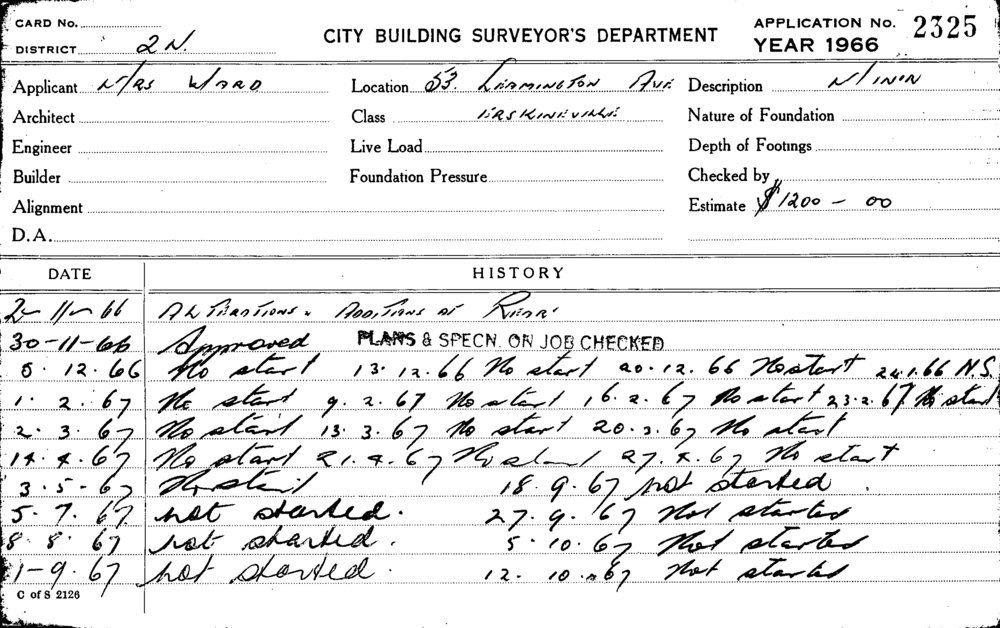 CARD No.
DISTRICT 2 N.
CITY BUILDING SURVEYOR'S DEPARTMENT
APPLICATION No. 2325
YEAR 1966
Applicant Mrs WARD Location 53. LEAMINGTON AVE Description
Architect Class ERSKINEVILLE Nature of Foundation
Engineer Live Load Depth of Footings
Builder Foundation Pressure Checked by
Alignment Estimate $1200 - 00
D.A.
DATE HISTORY
2-11-66 ALTERATIONS & ADDITIONS AT REAR
30-11-66 Approved PLANS & SPECN. ON JOB CHECKED
5. 12. 66 No start 13. 12. 66 No start 20. 12. 66 No start 24.1.66 N.S.
1. 2. 67 No start 9. 2. 67 No start 16. 2. 67 No start 23. 2. 67 No start
2. 3. 67 No start 13. 3. 67 No start 20. 3. 67 No start
14. 4. 67 No start 21. 4. 67 No start 27. 4. 67 No start
3. 5. - 67 No start 18. 9. 67 not started
5. 7. 67 not started. 27. 9. 67 Not started
8. 8. 67 not started. 5. 10. 67 Not started
1-9. 67 not started. 12. 10. 67 Not started
C of S 2126